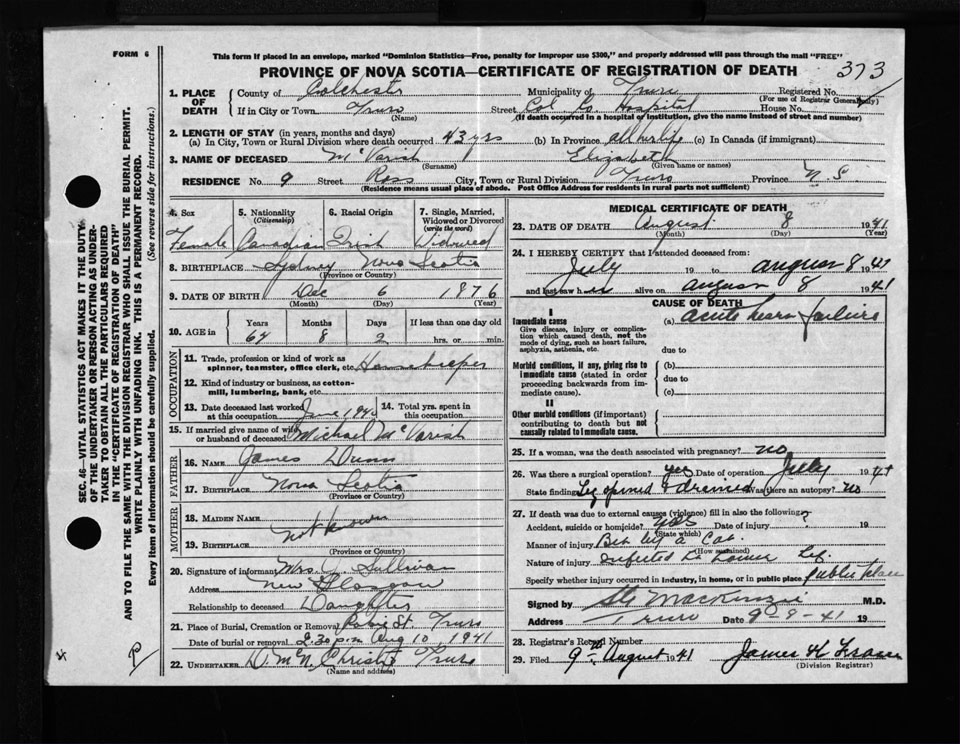 FORM 6
This form if placed in an envelope, marked "Dominion Statistics—Free, penalty for improper use $300," and properly addressed will pass through the mail "FREE"
PROVINCE OF NOVA SCOTIA—CERTIFICATE OF REGISTRATION OF DEATH
373
1. PLACE OF DEATH
County of Colchester Municipality of Truro Registered No.
(For use of Registrar General only)
If in City or Town Truro Street Col Co Hospital House No.
(Name) (If death occurred in a hospital or institution, give the name instead of street and number)
2. LENGTH OF STAY (in years, months and days)
(a) In City, Town or Rural Division where death occurred 43 yrs (b) In Province all her life (c) In Canada (if immigrant)
3. NAME OF DECEASED McVarish Elizabeth
(Surname) (Given name or names)
RESIDENCE No. 9 Street Ross City, Town or Rural Division Truro Province N.S.
(Residence means usual place of abode. Post Office Address for residents in rural parts not sufficient)
4. Sex 5. Nationality (Citizenship) 6. Racial Origin 7. Single, Married, Widowed or Divorced (write the word)
Female Canadian Irish Widowed
8. BIRTHPLACE Sydney Nova Scotia
(Province or Country)
9. DATE OF BIRTH Dec 6 1876
(Month) (Day) (Year)
10. AGE in Years Months Days If less than one day old
64 8 2 hrs. or min.
OCCUPATION
11. Trade, profession or kind of work as spinner, teamster, office clerk, etc. Housekeeper
12. Kind of industry or business, as cotton-mill, lumbering, bank, etc.
13. Date deceased last worked at this occupation June 1940 14. Total yrs. spent in this occupation
15. If married give name of wife or husband of deceased Michael McVarish
FATHER
16. NAME James Dunn
17. BIRTHPLACE Nova Scotia
(Province or Country)
MOTHER
18. MAIDEN NAME
19. BIRTHPLACE not known
(Province or Country)
20. Signature of informant Mrs. J. Sullivan
Address New Glasgow
Relationship to deceased Daughter
21. Place of Burial, Cremation or Removal Robie St. Truro
Date of burial or removal 2.30 p.m. Aug 10, 1941
22. UNDERTAKER D. McN. Christie Truro
(Name and address)
MEDICAL CERTIFICATE OF DEATH
23. DATE OF DEATH August 8 1941
(Month) (Day) (Year)
24. I HEREBY CERTIFY that I attended deceased from:
July 19 to August 8 1941
and last saw her alive on August 8 1941
CAUSE OF DEATH
I
Immediate cause (a) Acute heart failure
Give disease, injury or complication which caused death, not the mode of dying, such as heart failure, asphyxia, asthenia, etc.
due to
Morbid conditions, if any, giving rise to immediate cause (stated in order proceeding backwards from immediate cause).
(b)
due to
(c)
II
Other morbid conditions (if important) contributing to death but not causally related to immediate cause.
25. If a woman, was the death associated with pregnancy? no
26. Was there a surgical operation? yes Date of operation July 1941
State findings Leg opened & drained Was there an autopsy? no
27. If death was due to external causes (violence) fill in also the following:
Accident, suicide or homicide? Yes Date of injury ? 19
(State which)
Manner of injury Bit by a Cat.
(How sustained)
Nature of injury Infected Lower Leg.
Specify whether injury occurred in industry, in home, or in public place public place
Signed by MacKenzie M.D.
Address Truro Date 9-9-41 19
28. Registrar's Record Number
29. Filed 9th August 1941 James H Fraser
(Division Registrar)
SEC. 46—VITAL STATISTICS ACT MAKES IT THE DUTY OF THE UNDERTAKER OR PERSON ACTING AS UNDERTAKER TO OBTAIN ALL THE PARTICULARS REQUIRED IN THE "CERTIFICATE OF REGISTRATION OF DEATH" AND TO FILE THE SAME WITH THE DIVISION REGISTRAR WHO SHALL ISSUE THE BURIAL PERMIT.
WRITE PLAINLY WITH UNFADING INK. THIS IS A PERMANENT RECORD.
Every item of information should be carefully supplied. (See reverse side for instructions.)